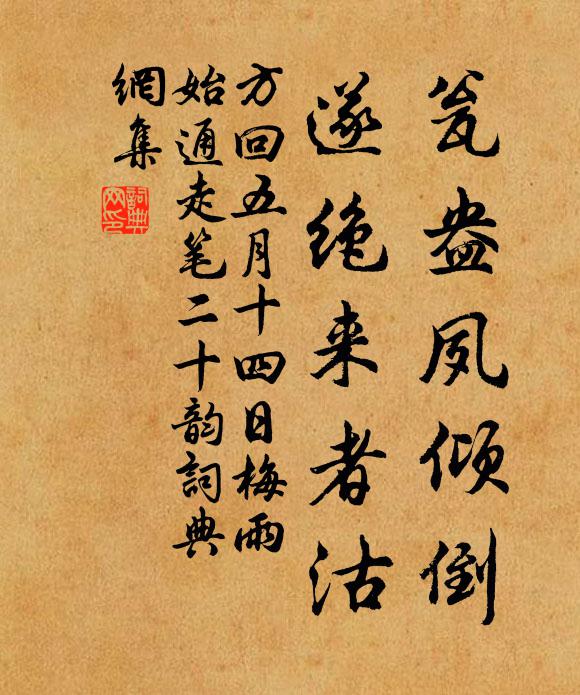 瓮盎夙倾倒
遂绝来者沽
方回五月十四日梅雨
始通走笔二十韵词典
網集
詞典網印